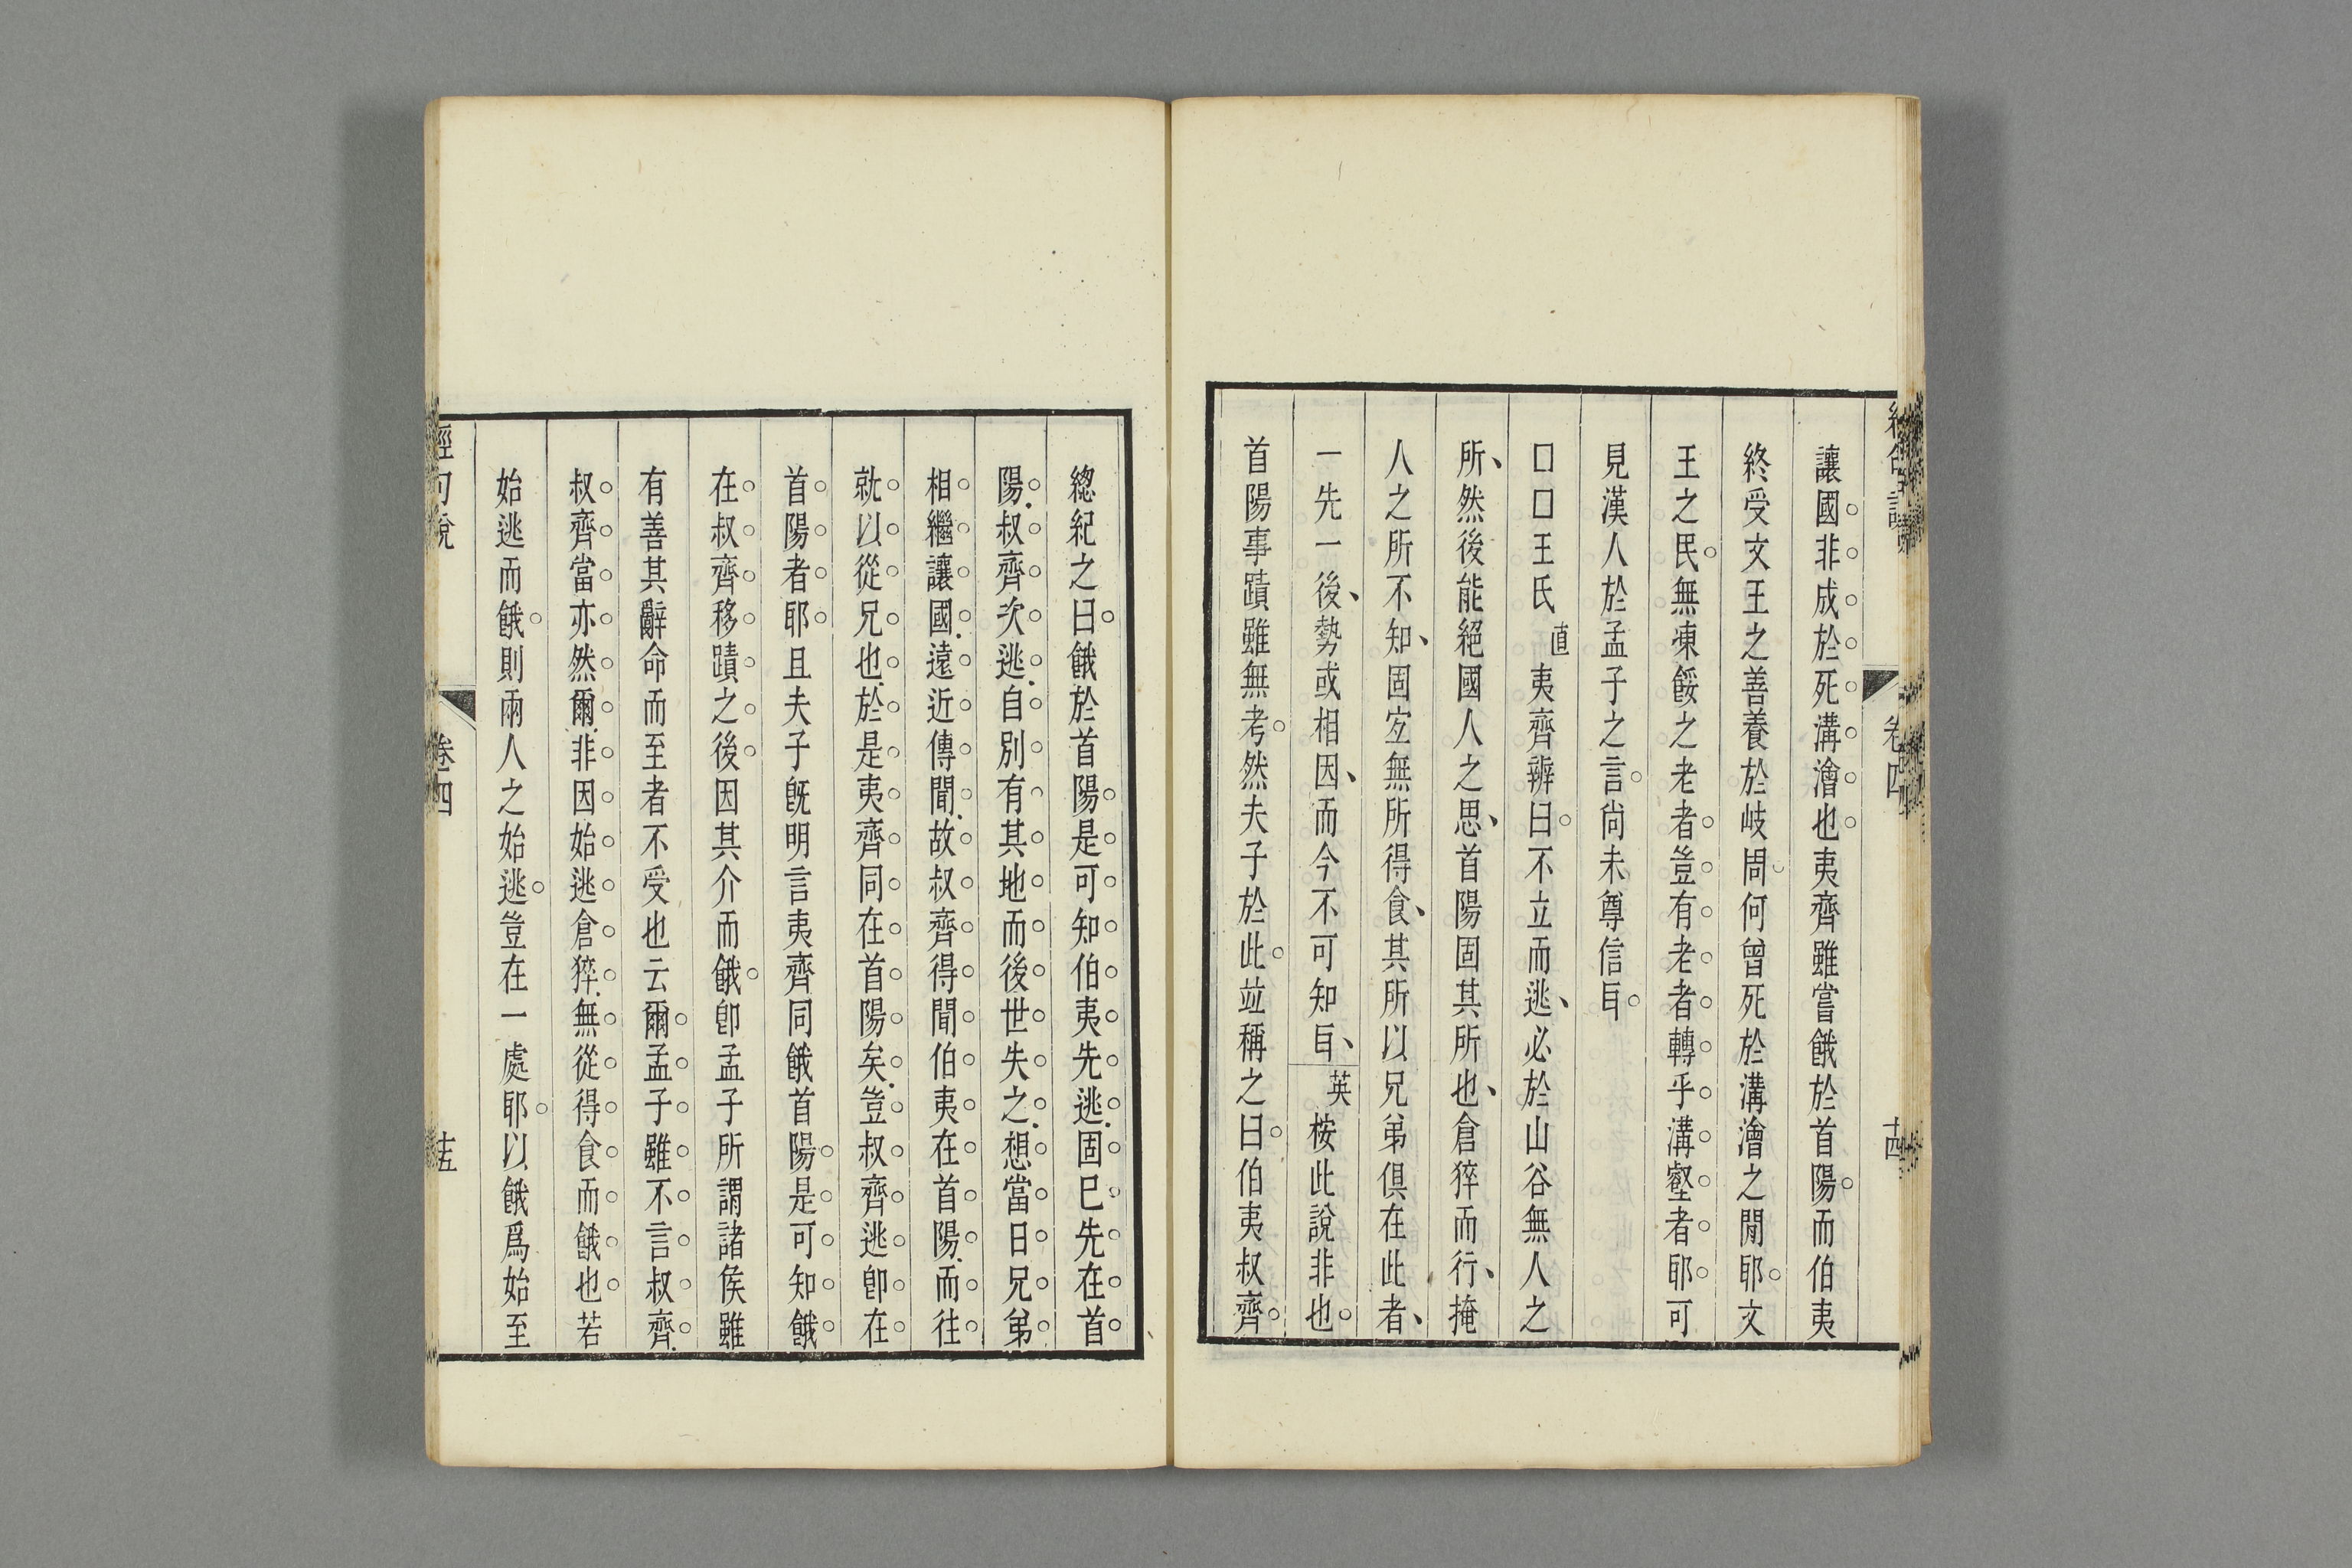 讓國非成於死溝澮也夷齊雖嘗餓於首陽而伯夷
終受文王之善養於岐周何曾死於溝澮之閒耶文
王之民無凍餒之老者豈有老者轉乎溝壑者耶可
見漢人於孟子之言尙未尊信㠯
口口王氏直夷齊辨曰不立而逃必於山谷無人之
所然後能絕國人之思首陽固其所也倉猝而行掩
人之所不知固宐無所得食其所以兄弟俱在此者
一先一後勢或相因而今不可知㠯英桉此說非也
首陽事蹟雖無考然夫子於此竝稱之曰伯夷叔齊
卷四
十四
總紀之曰餓於首陽是可知伯夷先逃固巳先在首
陽叔齊次逃自別有其地而後世失之想當日兄弟
相繼讓國遠近傳聞故叔齊得聞伯夷在首陽而往
就以從兄也於是夷齊同在首陽矣豈叔齊逃卽在
首陽者耶且夫子旣明言夷齊同餓首陽是可知餓
在叔齊移蹟之後因其介而餓卽孟子所謂諸矦雖
有善其辭命而至者不受也云爾孟子雖不言叔齊
叔齊當亦然爾非因始逃倉猝無從得食而餓也若
始逃而餓則兩人之始逃豈在一處耶以餓爲始至
經句說
卷四
十五